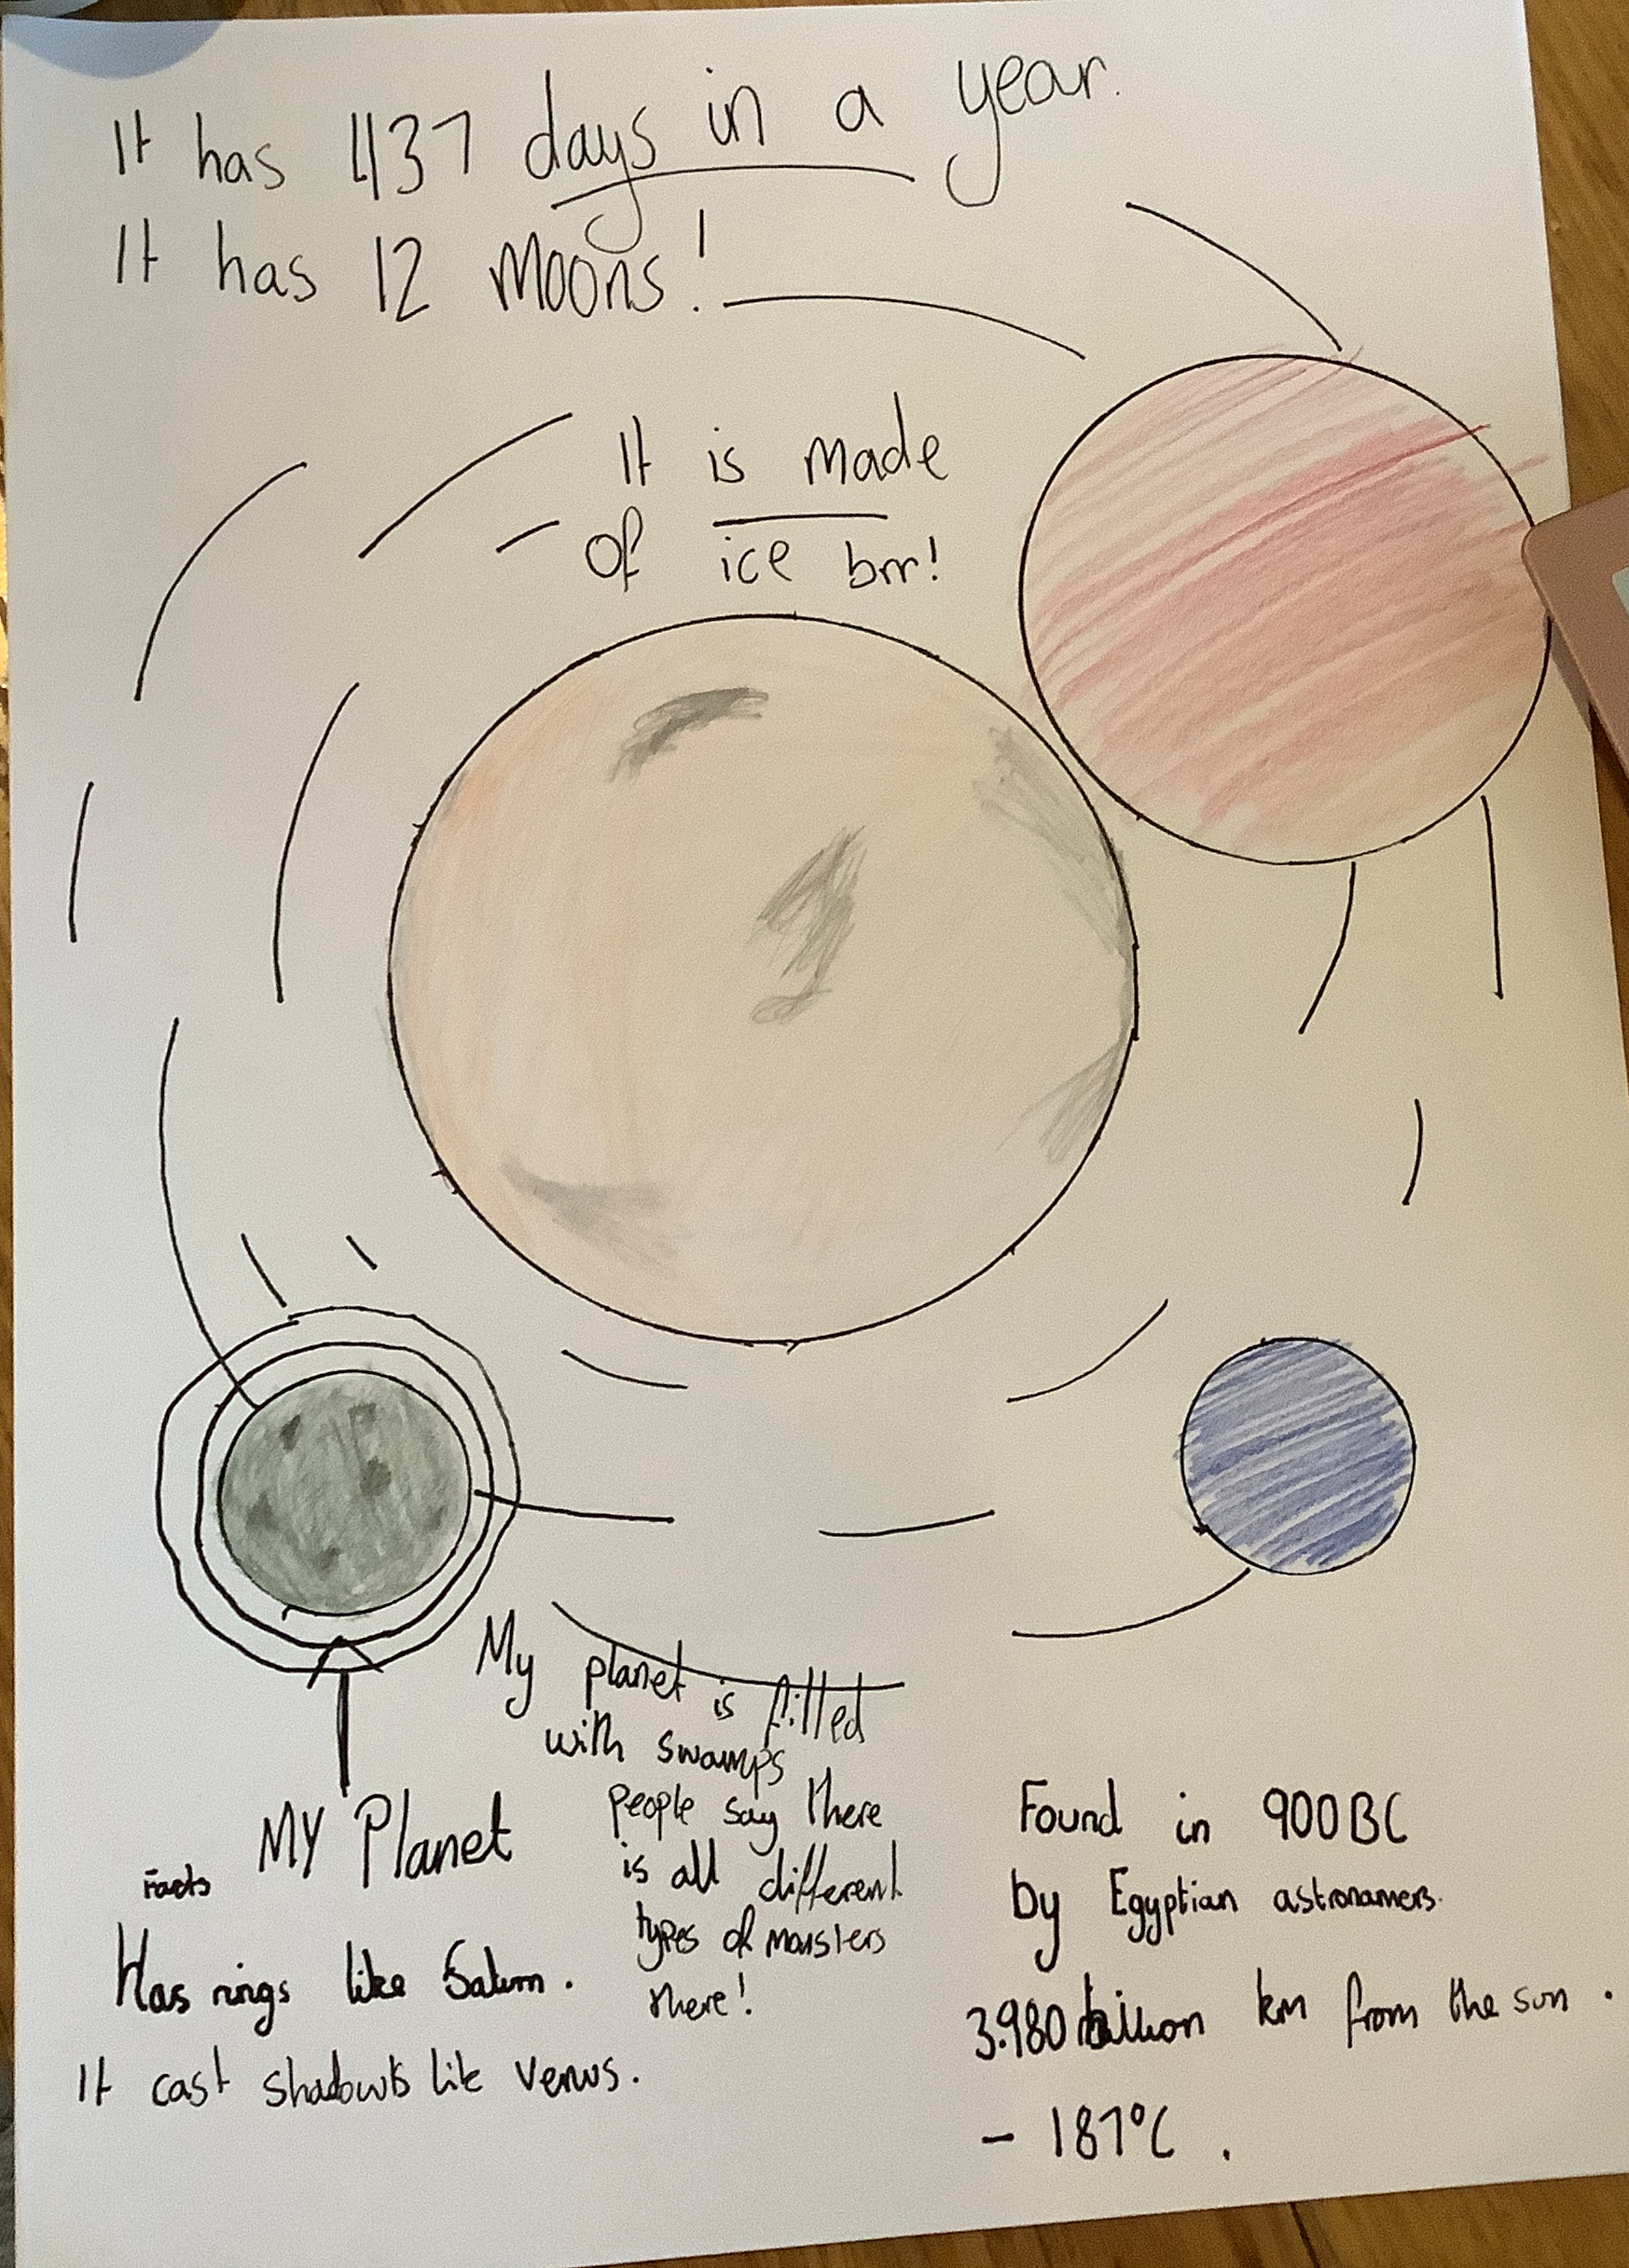 It has 437 days in a year.
It has 12 Moons!
It is made
of ice brr!
My planet is filled
with swamps
people say there
is all different
types of monsters
there!
MY Planet
Facts
Has rings like Saturn.
It cast shadowts like Venus.
Found in 900BC
by Egyptian astronamers.
3.980 billion km from the sun.
- 187°C.